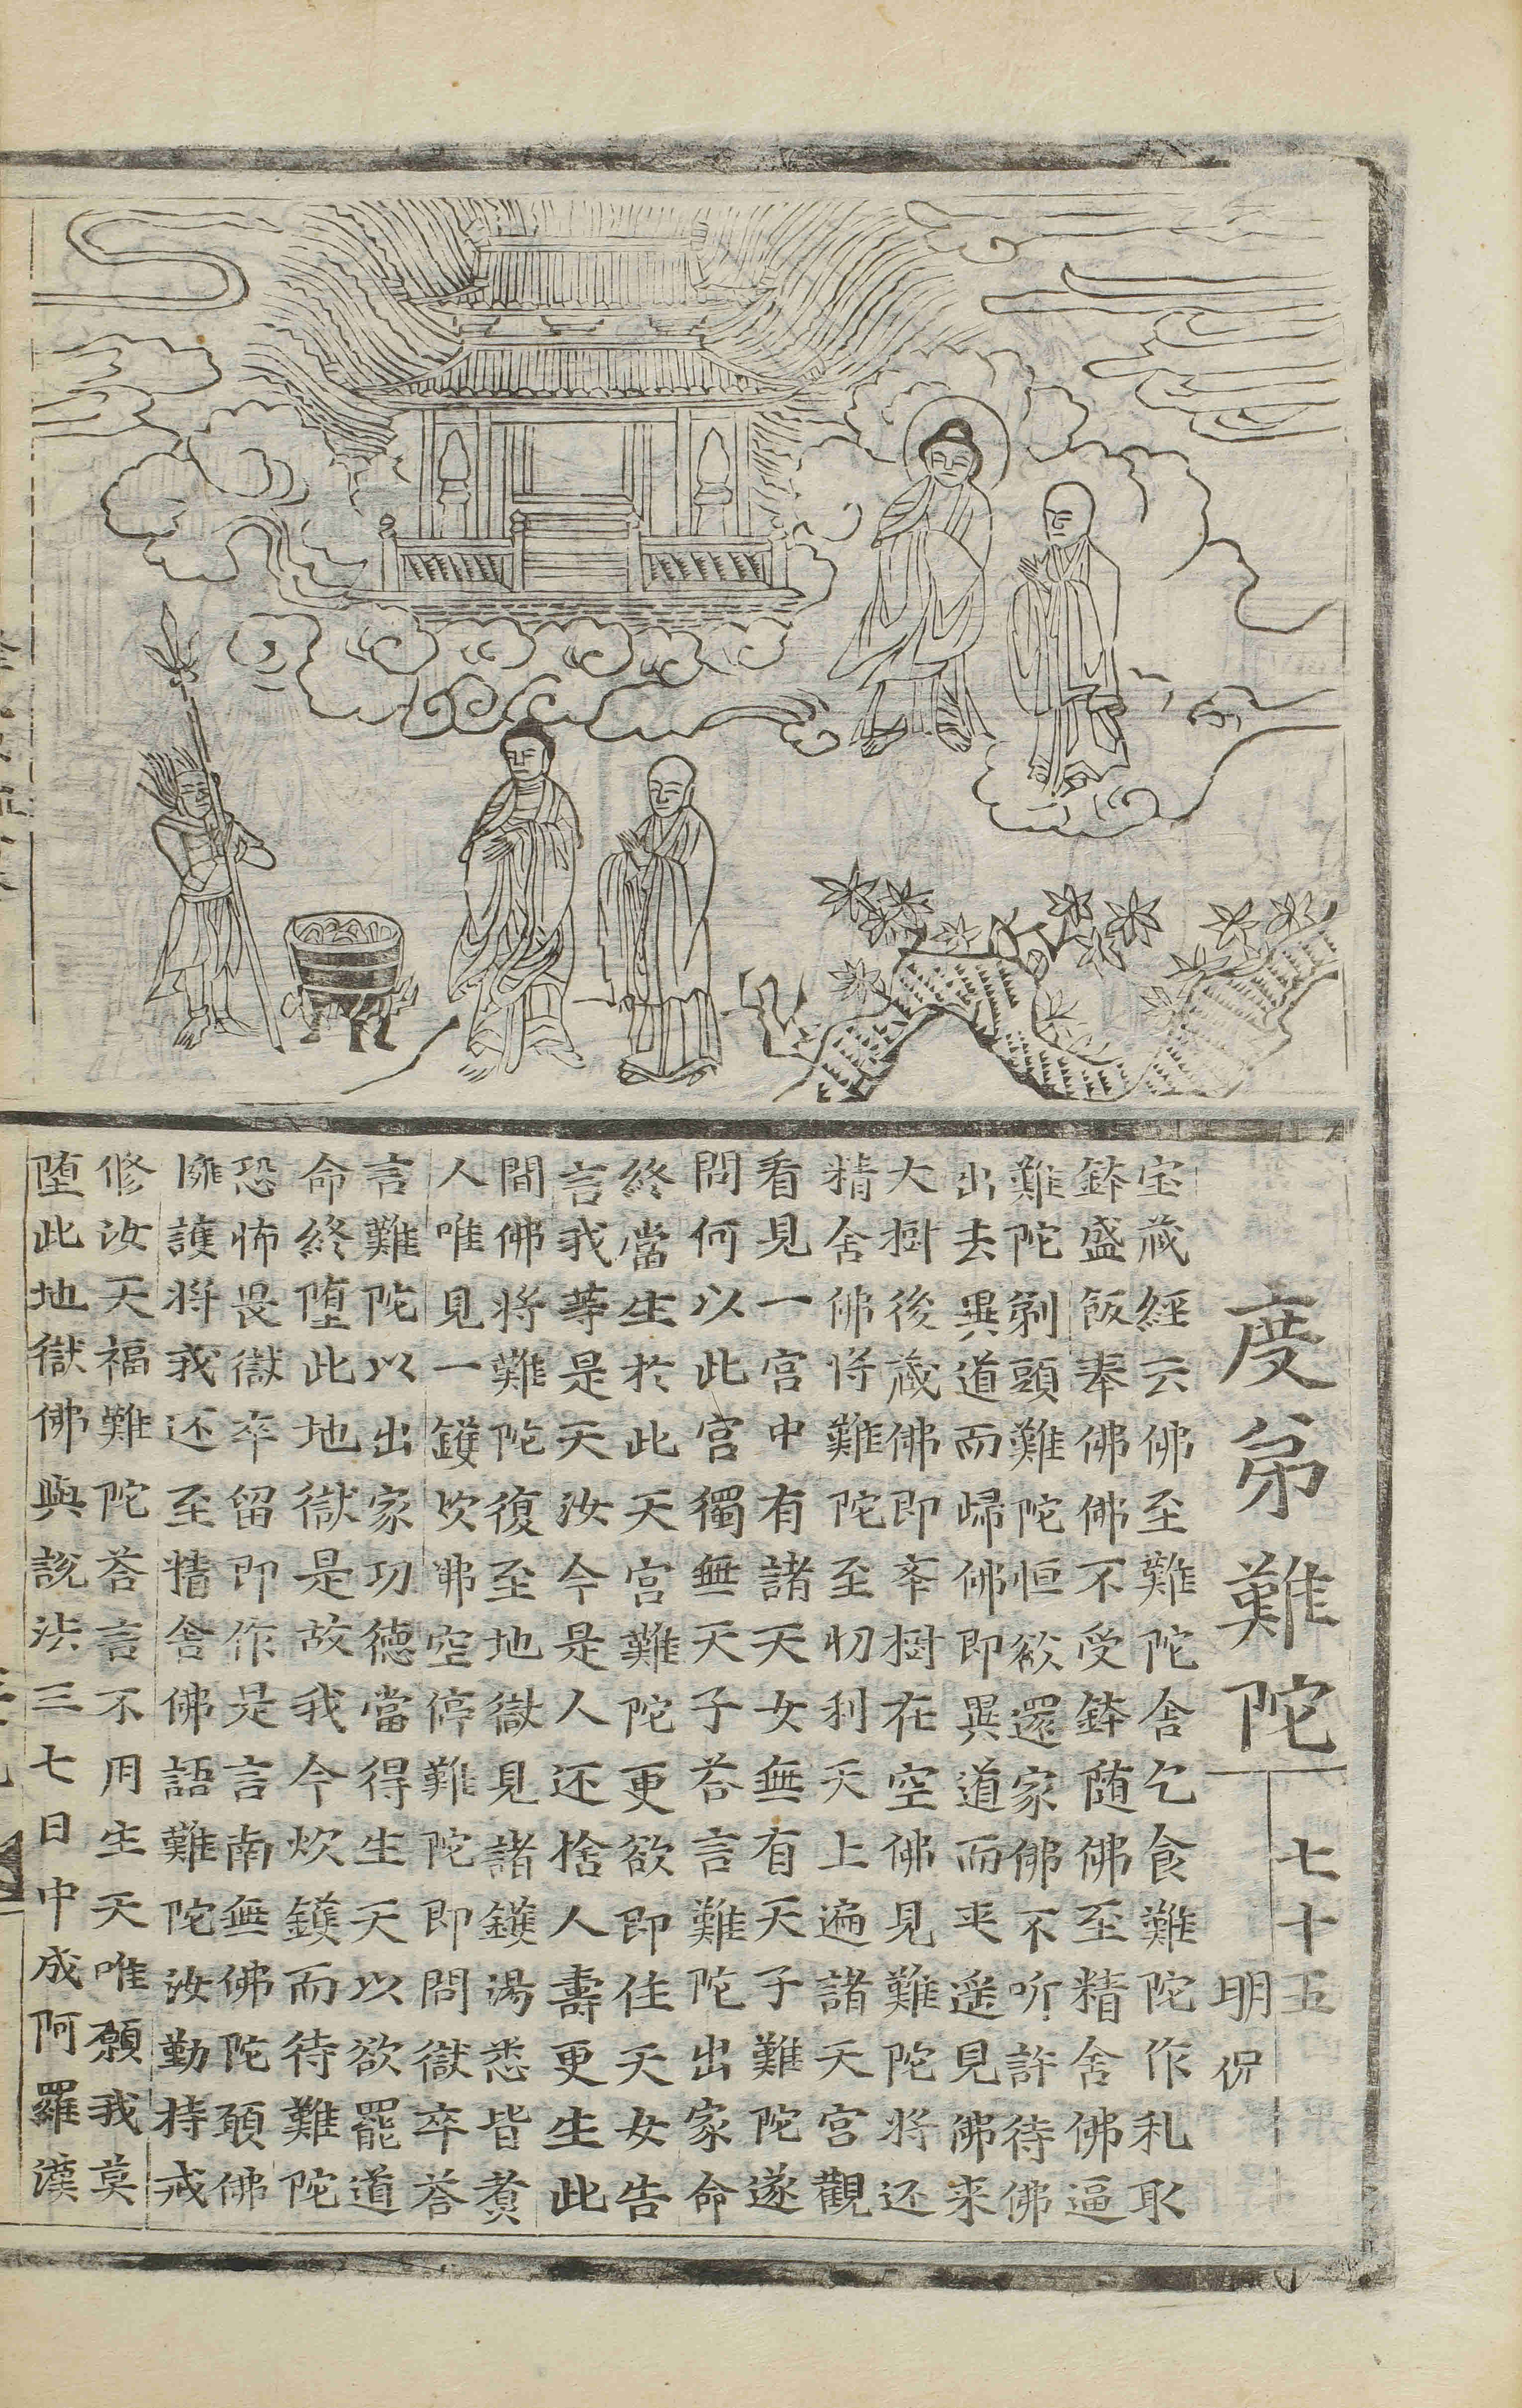 度弟難陀
七十五
明侃
宝蔵經云佛至難陀舍乞食難陀作礼取
鉢盛飯奉佛佛不受鉢随佛至精舍佛逼
難陀剃頭難陀恒欲還家佛不听許待佛
出去異道而歸佛即異道而来遥見佛来
大樹後蔵佛即牽樹在空佛見難陀將还
精舍佛将難陀至忉利天上遍諸天宫觀
看見一宫中有諸天女無有天子難陀遂
問何以此宫獨無天子荅言難陀出家命
終當生於此天宫難陀更欲即住天女告
言我等是天汝今是人还捨人壽更生此
間佛將難陀復至地獄見諸鑊湯悉皆煑
人唯見一鑊炊沸空停難陀即問獄卒荅
言難陀以出家功德當得生天以欲罷道
命終堕此地獄是故我今炊鑊而待難陀
恐怖畏獄卒留即作是言南無佛陀願佛
擁護将我还至精舍佛語難陀汝勤持戒
修汝天福難陀荅言不用生天唯願我莫
堕此地獄佛與說法三七日中成阿羅漢